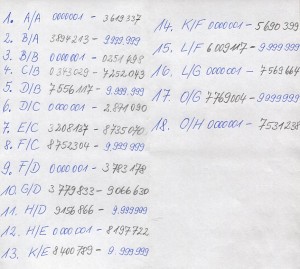 1. A/A 0000001 - 3619337
2. B/A 3894213 - 9.999.999
3. B/B 0000001 - 0251498
4. C/B 0373029 - 7252043
5. D/B 7556117 - 9.999.999
6. D/C 0000001 - 2.871090
7. E/C 3208127 - 8735070
8. F/C 8752304 - 9.999.999
9. F/D 0000001 - 3783178
10. G/D 3779833 - 9066630
11. H/D 9156866 - 9.999999
12. H/E 0000001 - 8197722
13. K/E 8400789 - 9.999999
14. K/F 0000001 - 5690399
15. L/F 6009117 - 9.999999
16. L/G 0000001 - 7569664
17. O/G 7769004 - 9999999
18. O/H 0000001 - 7531238